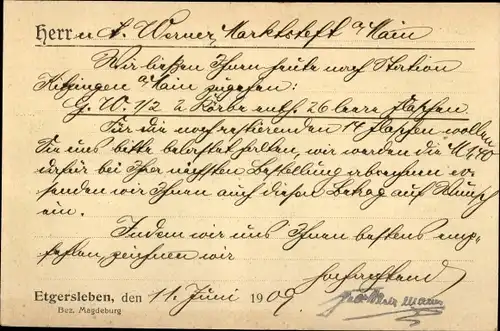 Herrn L. Werner, Marktsteft a/Main
Wir ließen Ihnen heute nach Station
Kitzingen a/Main zugehen:
G. W. 1/2 2 Körbe enth. 26 leere Flaschen.
Für die noch restierenden 14 Flaschen wollen
Sie uns bitte belastet halten, wir werden die M 1,40
dafür bei Ihrer nächsten Bestellung abrechnen od.
senden wir Ihnen auch diesen Betrag auf Wunsch
ein.
Indem wir uns Ihnen bestens emp-
fehlen, zeichnen wir
hochachtend
Etgersleben, den 11. Juni 1909
Bez. Magdeburg